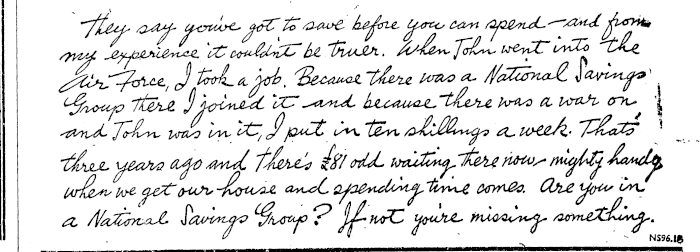 They say you've got to save before you can spend – and from
my experience it couldn't be truer. When John went into the
Air Force, I took a job. Because there was a National Savings
Group there I joined it – and because there was a war on
and John was in it, I put in ten shillings a week. That's
three years ago and there's £81 odd waiting there now – mighty handy
when we get our house and spending time comes. Are you in
a National Savings Group? If not you're missing something.
NS96.1B